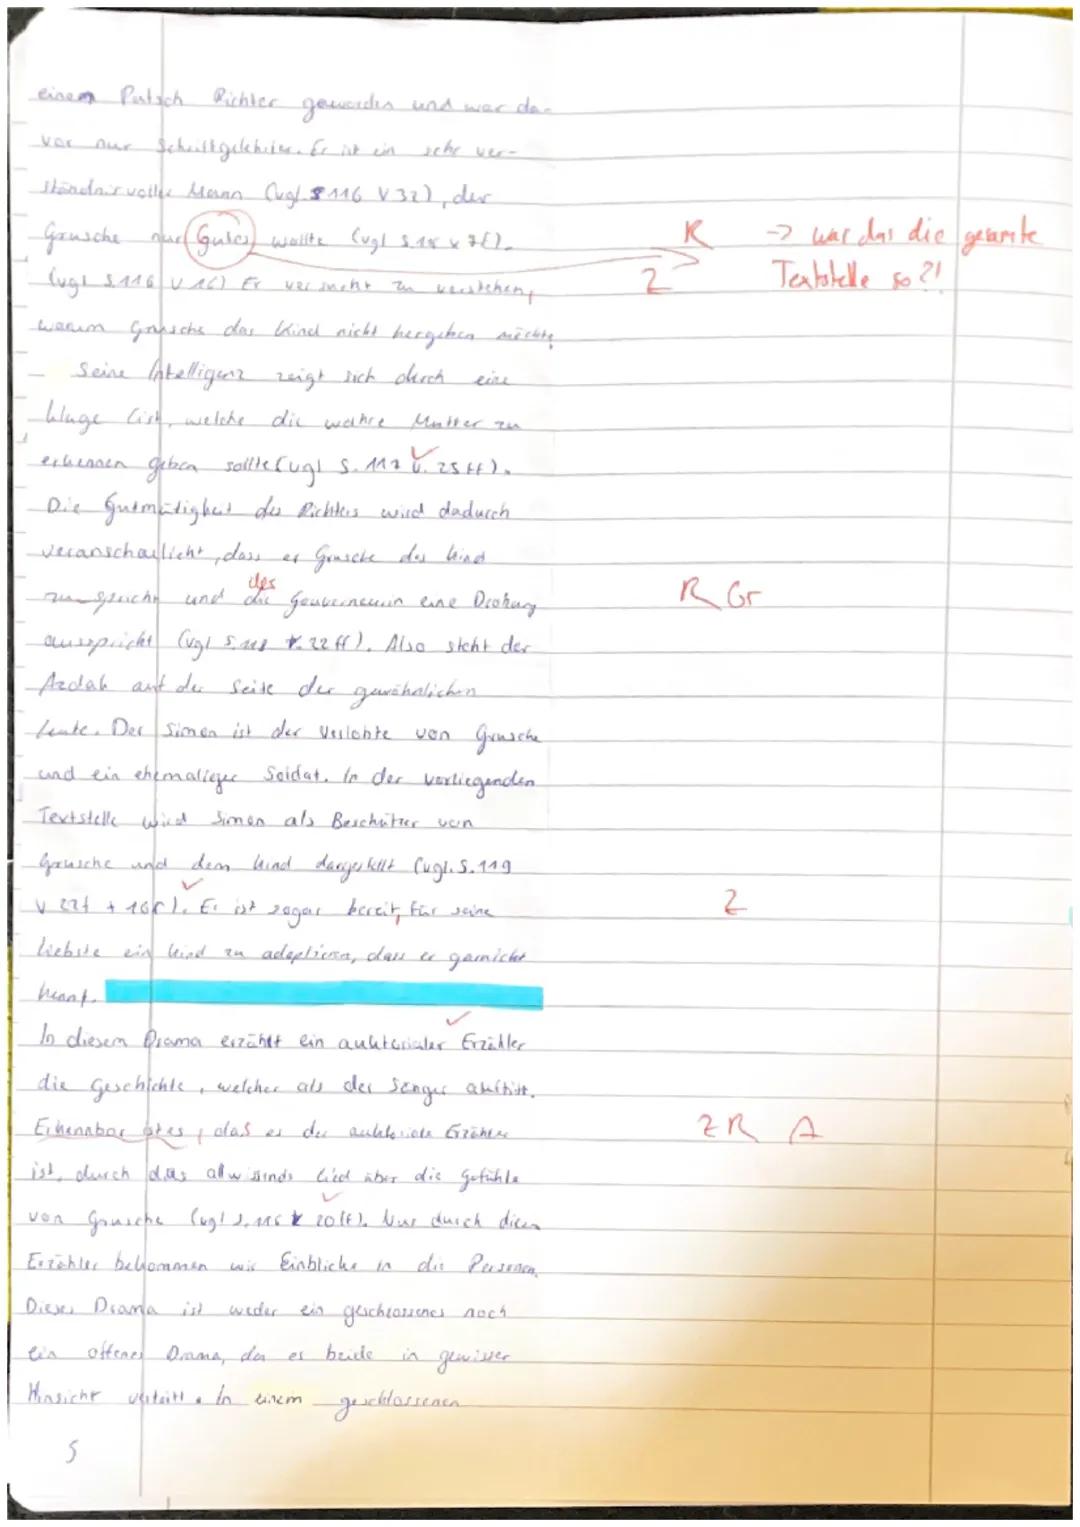 einem Putsch Richter geworden und war da-
vor nur Schriftgelehrter. Er ist ein sehr ver-
ständnisvoller Mann (vgl. S 116 V 32), der
Grusche nur Gutes wollte (vgl S. 7f).
R → war das die gesamte
(vgl S.116 V 16) Er versucht zu verstehen,
Z Textstelle so?!
warum Grusche das Kind nicht hergeben möchte.
Seine Intelligenz zeigt sich durch eine
kluge List, welche die wahre Mutter zu
erkennen geben sollte (vgl S. 117 V. 25ff).
Die Gutmütigkeit des Richters wird dadurch
veranschaulicht, dass er Grusche das Kind
des
zu spricht und die Gouverneurin eine Drohung
R Gr
ausspricht (vgl S. 118 22ff). Also steht der
Azdak auf der Seite der gewöhnlichen
Leute. Der Simon ist der Verlobte von Grusche
und ein ehemaliger Soldat. In der vorliegenden
Textstelle wird Simon als Beschützer von
Grusche und dem Kind dargestellt (vgl. S. 119
V 22f + 16f). Er ist sogar bereit, für seine
Z
liebste ein Kind zu adoptieren, dass er garnicht
kennt.
In diesem Drama erzählt ein auktorialer Erzähler
die Geschichte, welcher als der Sänger auftritt.
Erkennbar ist es, das es der auktoriale Erzähler
ZR A
ist, durch das allwissende Lied über die Gefühle
von Grusche (vgl S. 116 20ff). Nur durch diesen
Erzähler bekommen wir Einblicke in die Personen.
Dieses Drama ist weder ein geschlossenes noch
ein offenes Drama, da es beide in gewisser
Hinsicht vertritt. In einem geschlossenen
5